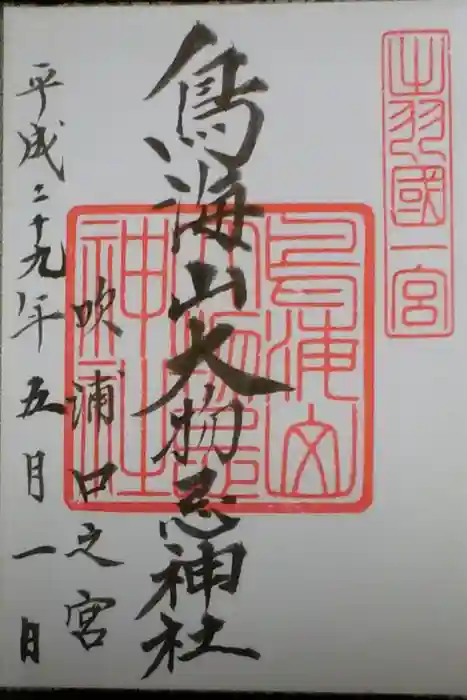 出羽國一宮
鳥海山大物忌神社
鳥海山
大物忌
神社
吹浦口之宮
平成二十九年五月一日